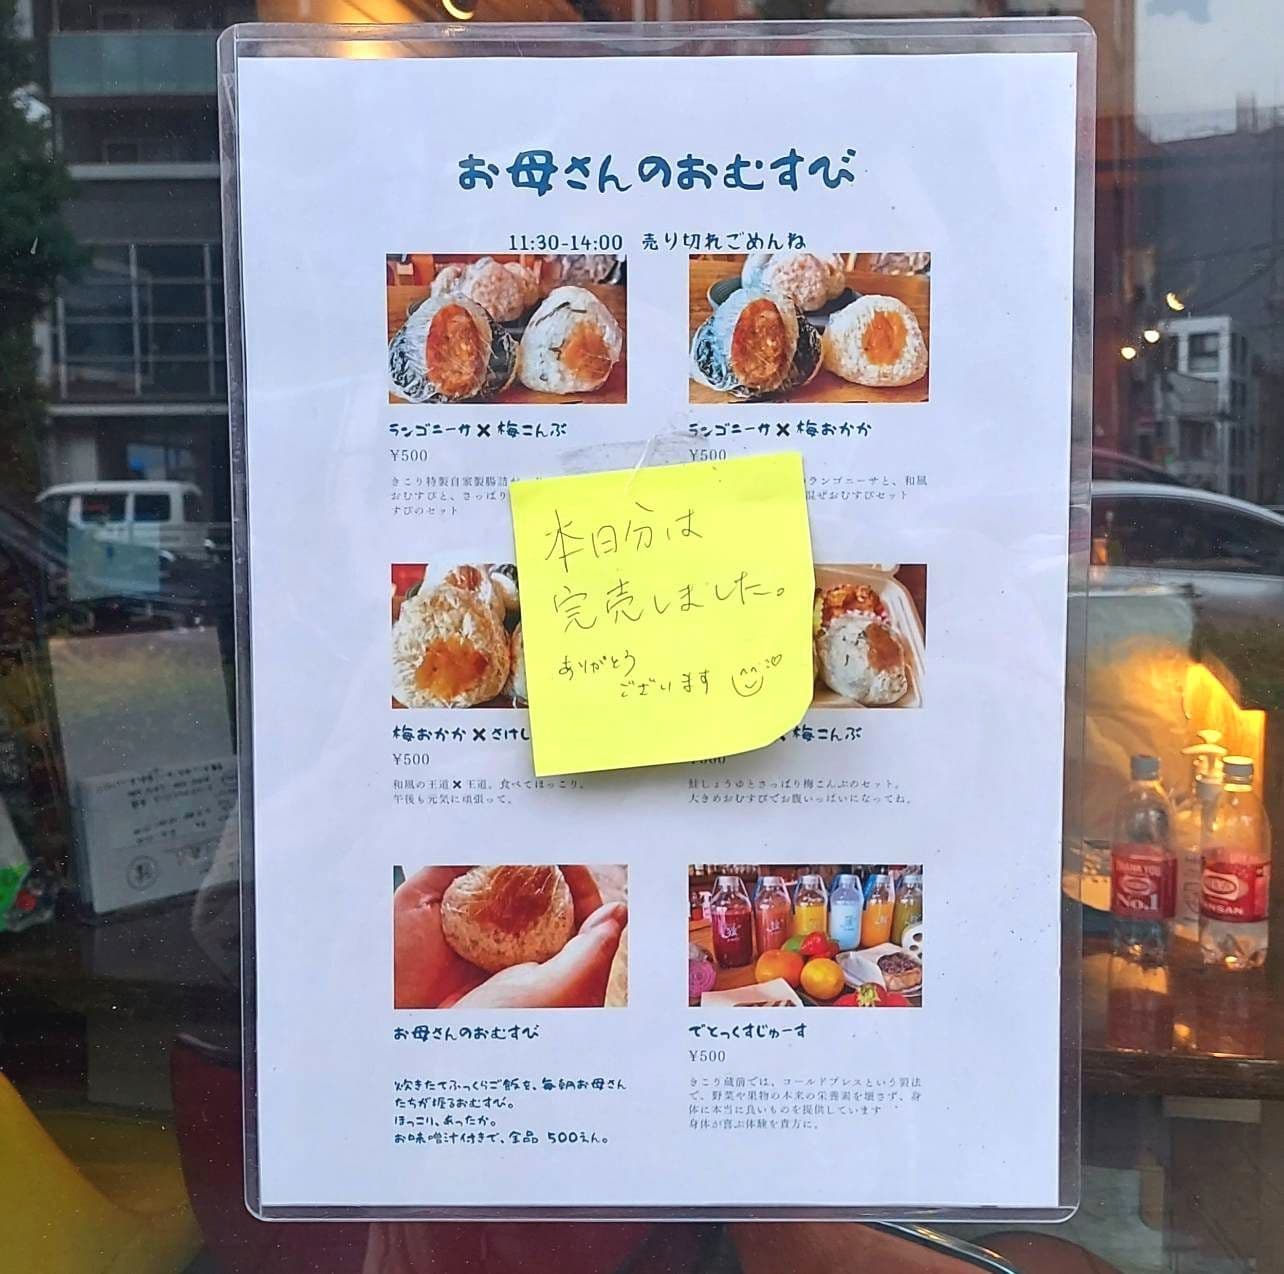 お母さんのおむすび
11:30-14:00 売り切れごめんね
ランゴニーサ✖梅こんぶ
¥500
きこり特製自家製腸詰
おむすびと、さっぱり
すびのセット
ランゴニーサ✖梅おかか
¥500
のランゴニーサと、和風
混ぜおむすびセット
本日分は
完売しました。
ありがとう
ございます
梅おかか✖さけし
¥500
和風の王道✖王道。食べてほっこり。
午後も元気に頑張って。
梅こんぶ
鮭しょうゆとさっぱり梅こんぶのセット。
大きめおむすびでお腹いっぱいになってね。
お母さんのおむすび
炊きたてふっくらご飯を、毎朝お母さん
たちが握るおむすび。
ほっこり、あったか。
お味噌汁付きで、全品 500えん。
でとっくすじゅーす
¥500
きこり蔵前では、コールドプレスという製法
で、野菜や果物の本来の栄養素を壊さず、身
体に本当に良いものを提供しています
身体が喜ぶ体験を貴方に。
No.1